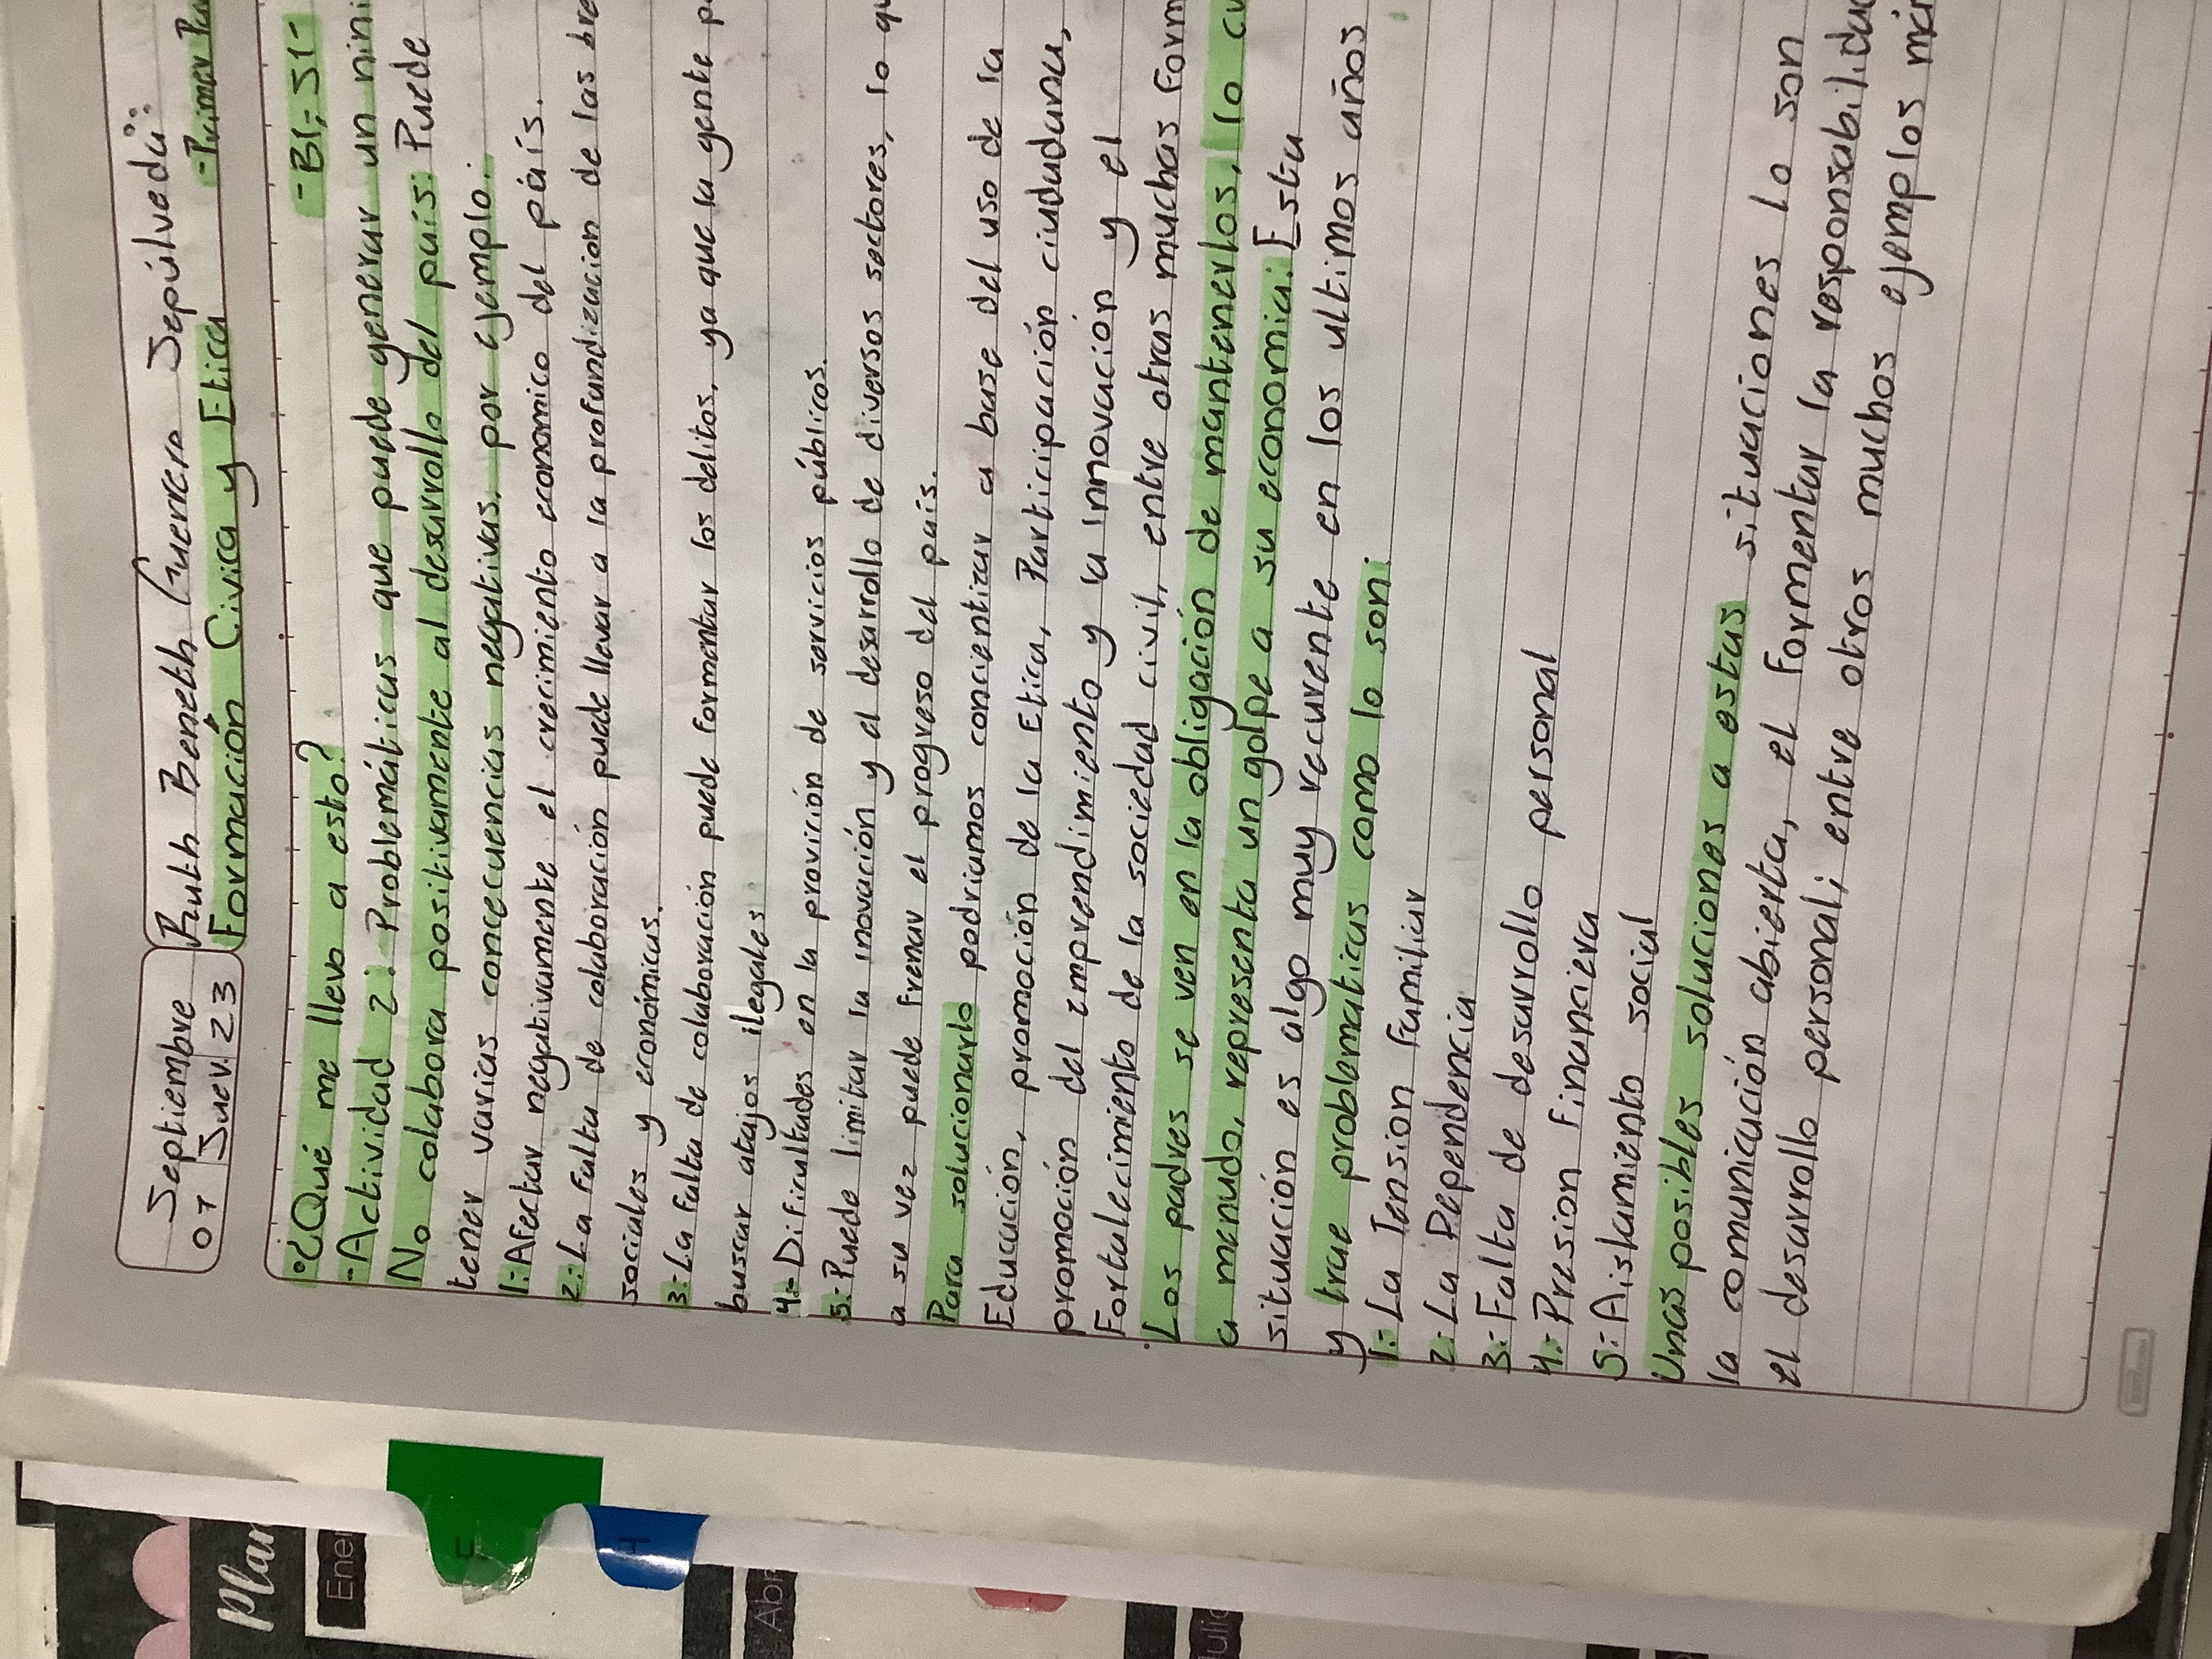 Septiembre
07 Juev. 23
Ruth Beneth Guerrero Sepúlveda:
Formación Civica y Etica -Primer
°¿Qué me llevo a esto? -B1,-S1-
-Actividad 2: Problemáticas que puede generar un nini
No colabora positivamente al desarrollo del país: Puede
tener varias concecuencias negativas, por ejemplo:
1:-Afectar negativamente el crecimiento economico del país.
2:-La falta de colaboración puede llevar a la profundizacion de las bre
sociales y económicas.
3:-La falta de colaboración puede formentar los delitos, ya que la gente p
buscar atajos ilegales
4:-Dificultades en la provición de servicios públicos.
5:-Puede limitar la inovación y el desarrollo de diversos sectores, lo qu
a su vez puede frenar el progreso del país.
Para solucionarlo podriamos concientizar a base del uso de la
Educación, promoción de la Etica, Participación ciudadana,
promoción del emprendimiento y la innovación y el
Fortalecimiento de la sociedad civil, entre otras muchas Form
Los padres se ven en la obligación de mantenerlos, lo cu
a menudo, representa un golpe a su economia: Esta
situación es algo muy recurente en los ultimos años
y trae problematicas como lo son:
1:-La Tension familiar
2:-La Dependencia
3:-Falta de desarollo personal
4:-Presion financiera
5:-Aislamiento social
Unas posibles soluciones a estas situaciones lo son
la comunicación abierta, el formentar la responsabilidad
el desarrollo personal; entre otros muchos ejemplos más
Plan
Ene
Abr
ulio
5
4